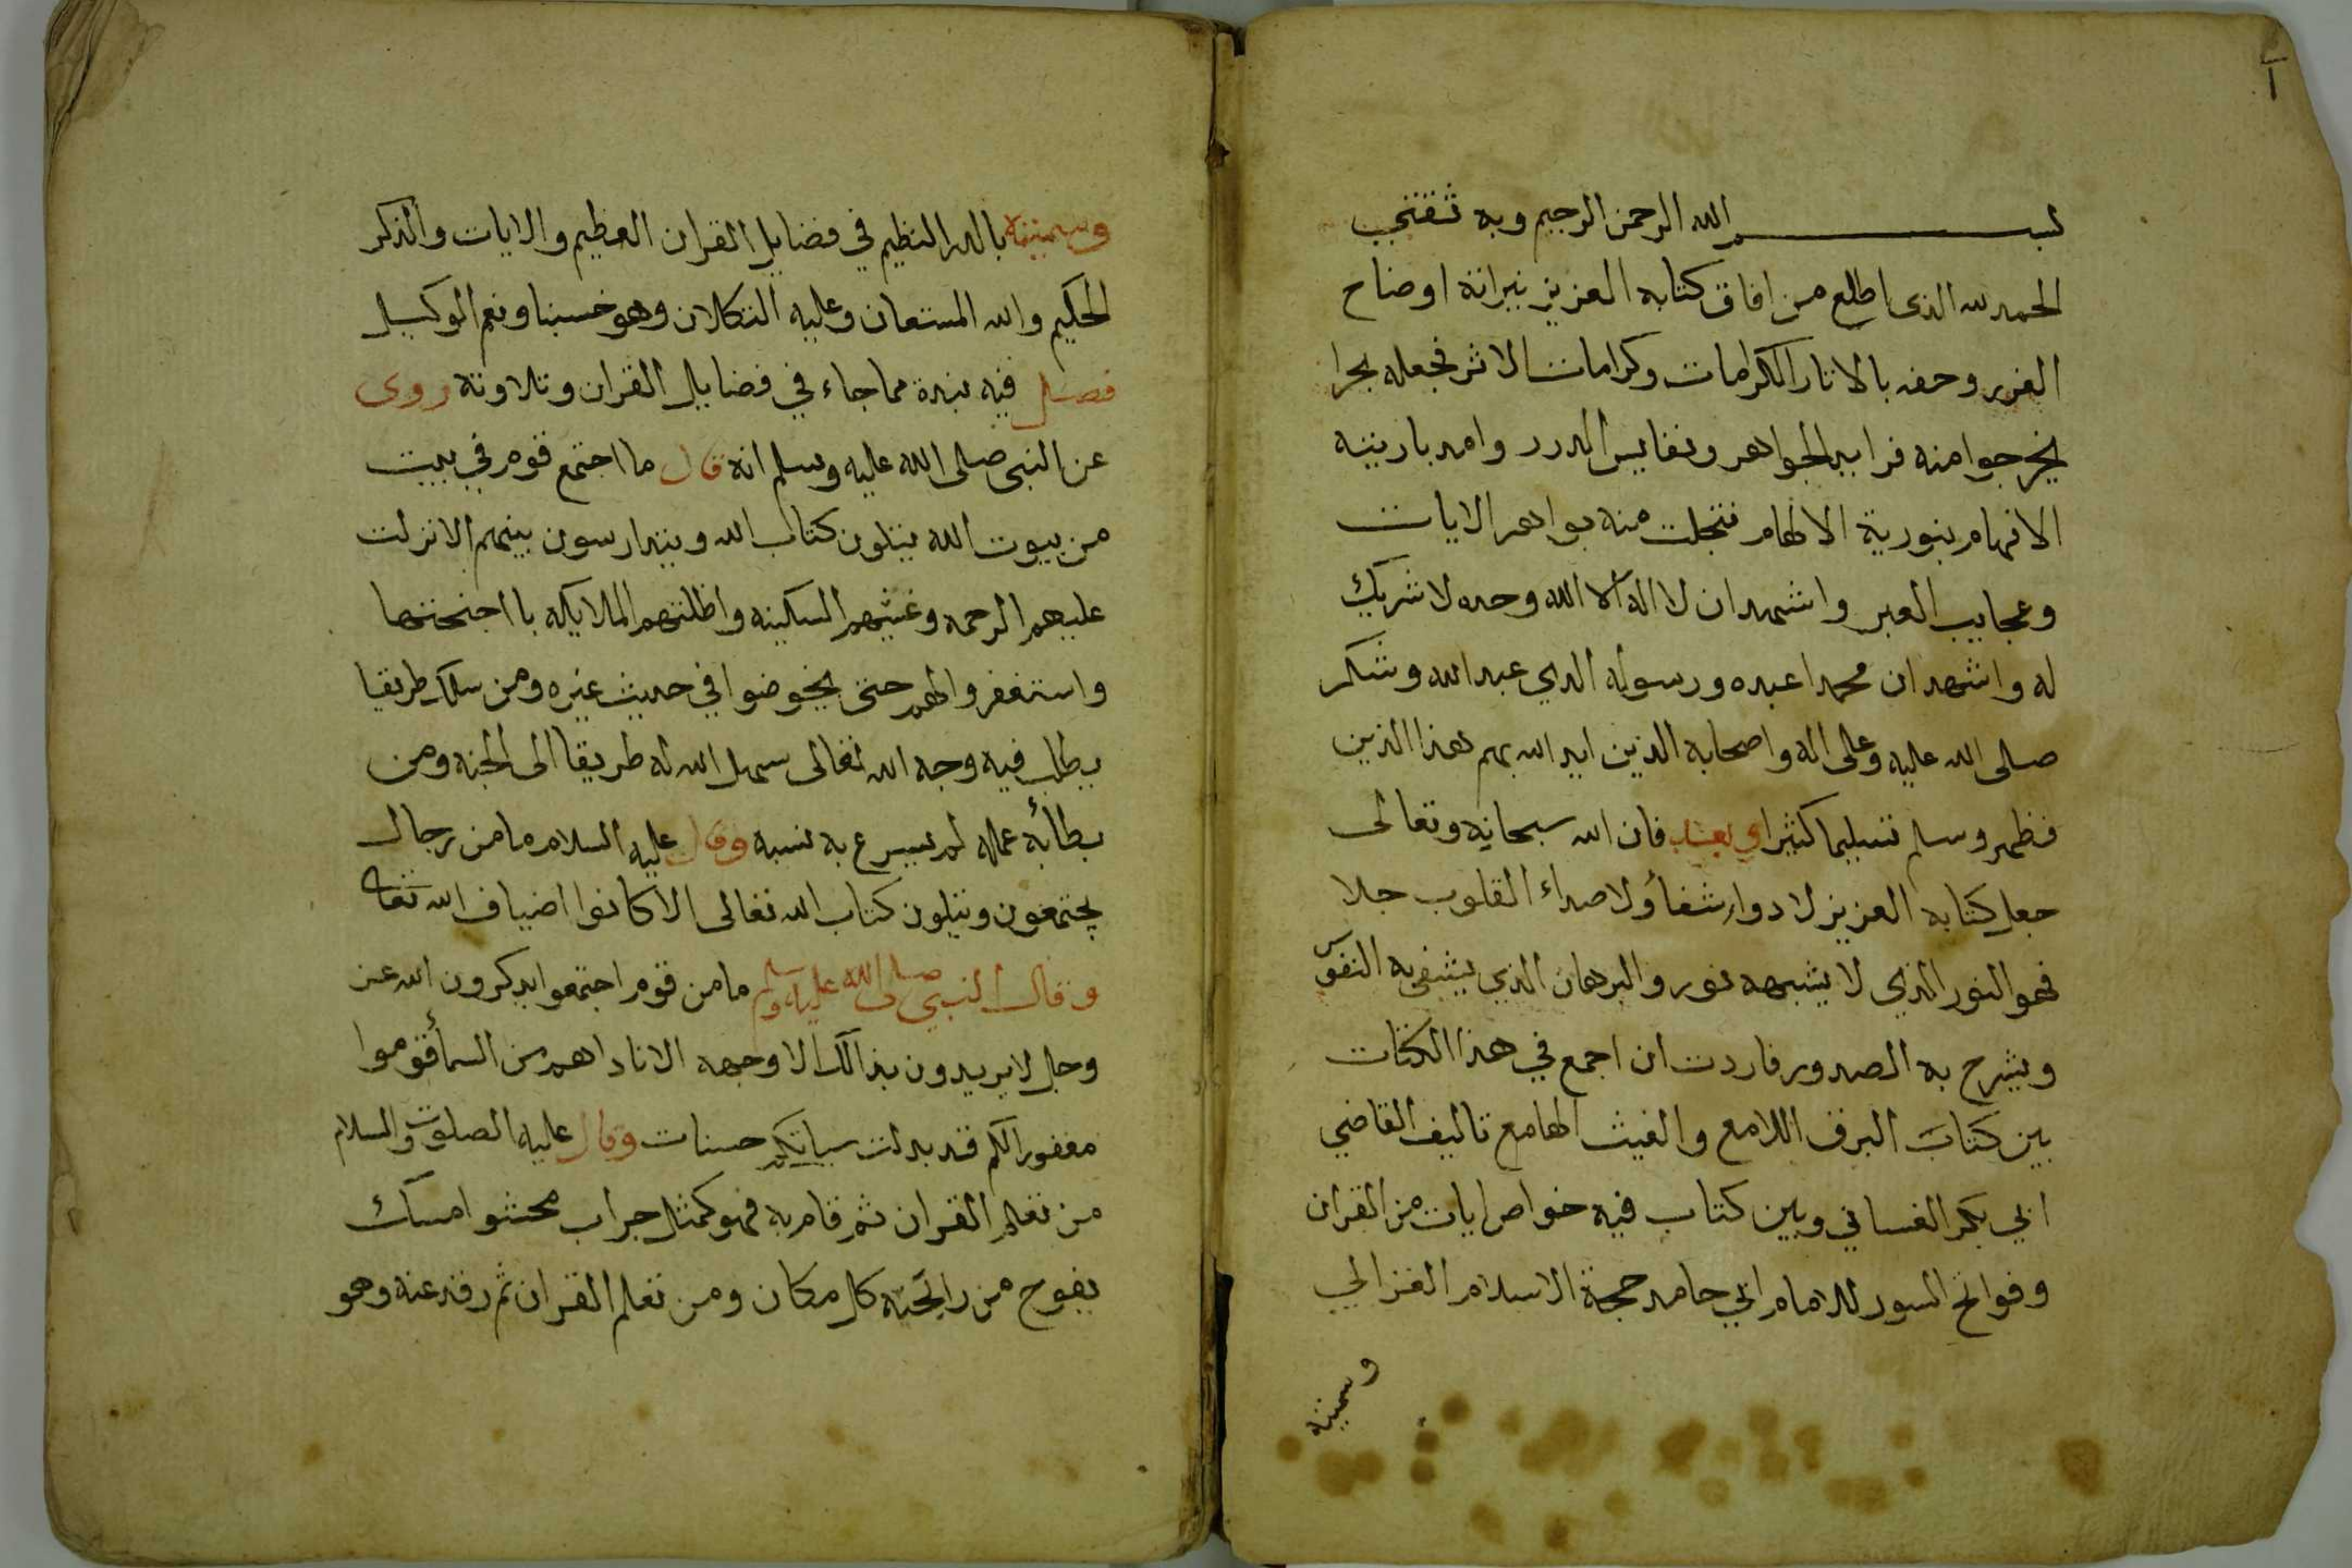 بسم الله الرحمن الرحيم وبه ثقتي
الحمد لله الذى اطلع من افاق كتابه العزيز نيراته اوضاح
الغرر وحفه بالاثار الكرامات وكرامات الاثر فجعله بحرا
يخرجوا منه فرايد الجواهر ونفايس الدرر وامد بازينه
الافهام بنورية الالهام فتجلت منه بواهر الايات
وعجايب العبر واشهد ان لا اله الا الله وحده لا شريك
له واشهد ان محمدا عبده ورسوله الذي عبد الله وشكر
صلى الله عليه وعلى اله واصحابه الذين ايد الله بهم هذا الدين
فظهر وسلم تسليما كثيرا اي بعد فان الله سبحانه وتعالى
جعل كتابه العزيز لادواء شفاء ولاصداء القلوب جلا
فهو النور الذي لا يشبهه نور والبرهان الذي يشفى به النفوس
ويشرح به الصدور فاردت ان اجمع في هذا الكتات
بين كتاب البرق اللامع والغيث الهامع تاليف القاضي
ابي بكر الغساني وبين كتاب فيه خواص ايات من القران
وفواتح السور للامام ابي حامد حجة الاسلام الغزالي
وسميته
وسميته بالدر النظيم في فضايل القران العظيم والايات والذكر
الحكيم والله المستعان وعليه التكلان وهو حسبنا ونعم الوكيل
فصل فيه نبذة مما جاء في فضايل القران وتلاوته روى
عن النبى صلى الله عليه وسلم انه قال ما اجتمع قوم في بيت
من بيوت الله يتلون كتاب الله ويتدارسون بينهم الا نزلت
عليهم الرحمه وغشيهم السكينه واظلتهم الملايكه بااجنحتها
واستغفروا لهم حتى يخوضوا في حديث غيره ومن سلك طريقا
يطلب فيه وجه الله تعالى سهل الله له طريقا الى الجنه ومن
بطأ به عمله لم يسرع به نسبه وقال عليه السلام ما من رجال
يجتمعون ويتلون كتاب الله تعالى الا كانوا اضياف الله تعا
وقال النبي صلى الله عليه وسلم ما من قوم اجتمعوا يذكرون الله عز
وجل لا يريدون بذالك الا وجهه الا ناداهم من السماء قوموا
مغفورا لكم قد بدلت سياتكم حسنات وقال عليه الصلوت والسلام
من تعلم القران ثم قام به فهو كمثل جراب محشوا مسك
يفوح من رايحته كل مكان ومن تعلم القران ثم رقد عنه وهو